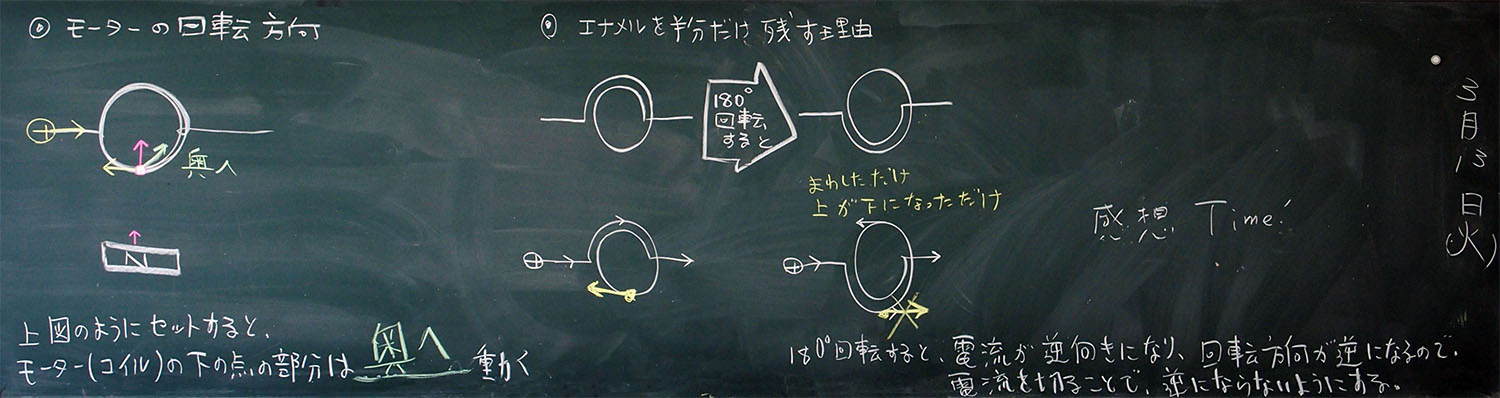 ◎ モーターの回転方向
⊕
奥へ
N
上図のようにセットすると、
モーター(コイル)の下の点の部分は奥へ動く
◎ エナメルを半分だけ残す理由
180°
回転
すると
まわしただけ
上が下になっただけ
⊕
⊕
180°回転すると、電流が逆向きになり、回転方向が逆になるので、
電流を切ることで、逆にならないようにする。
感想 Time!
3月13日(火)